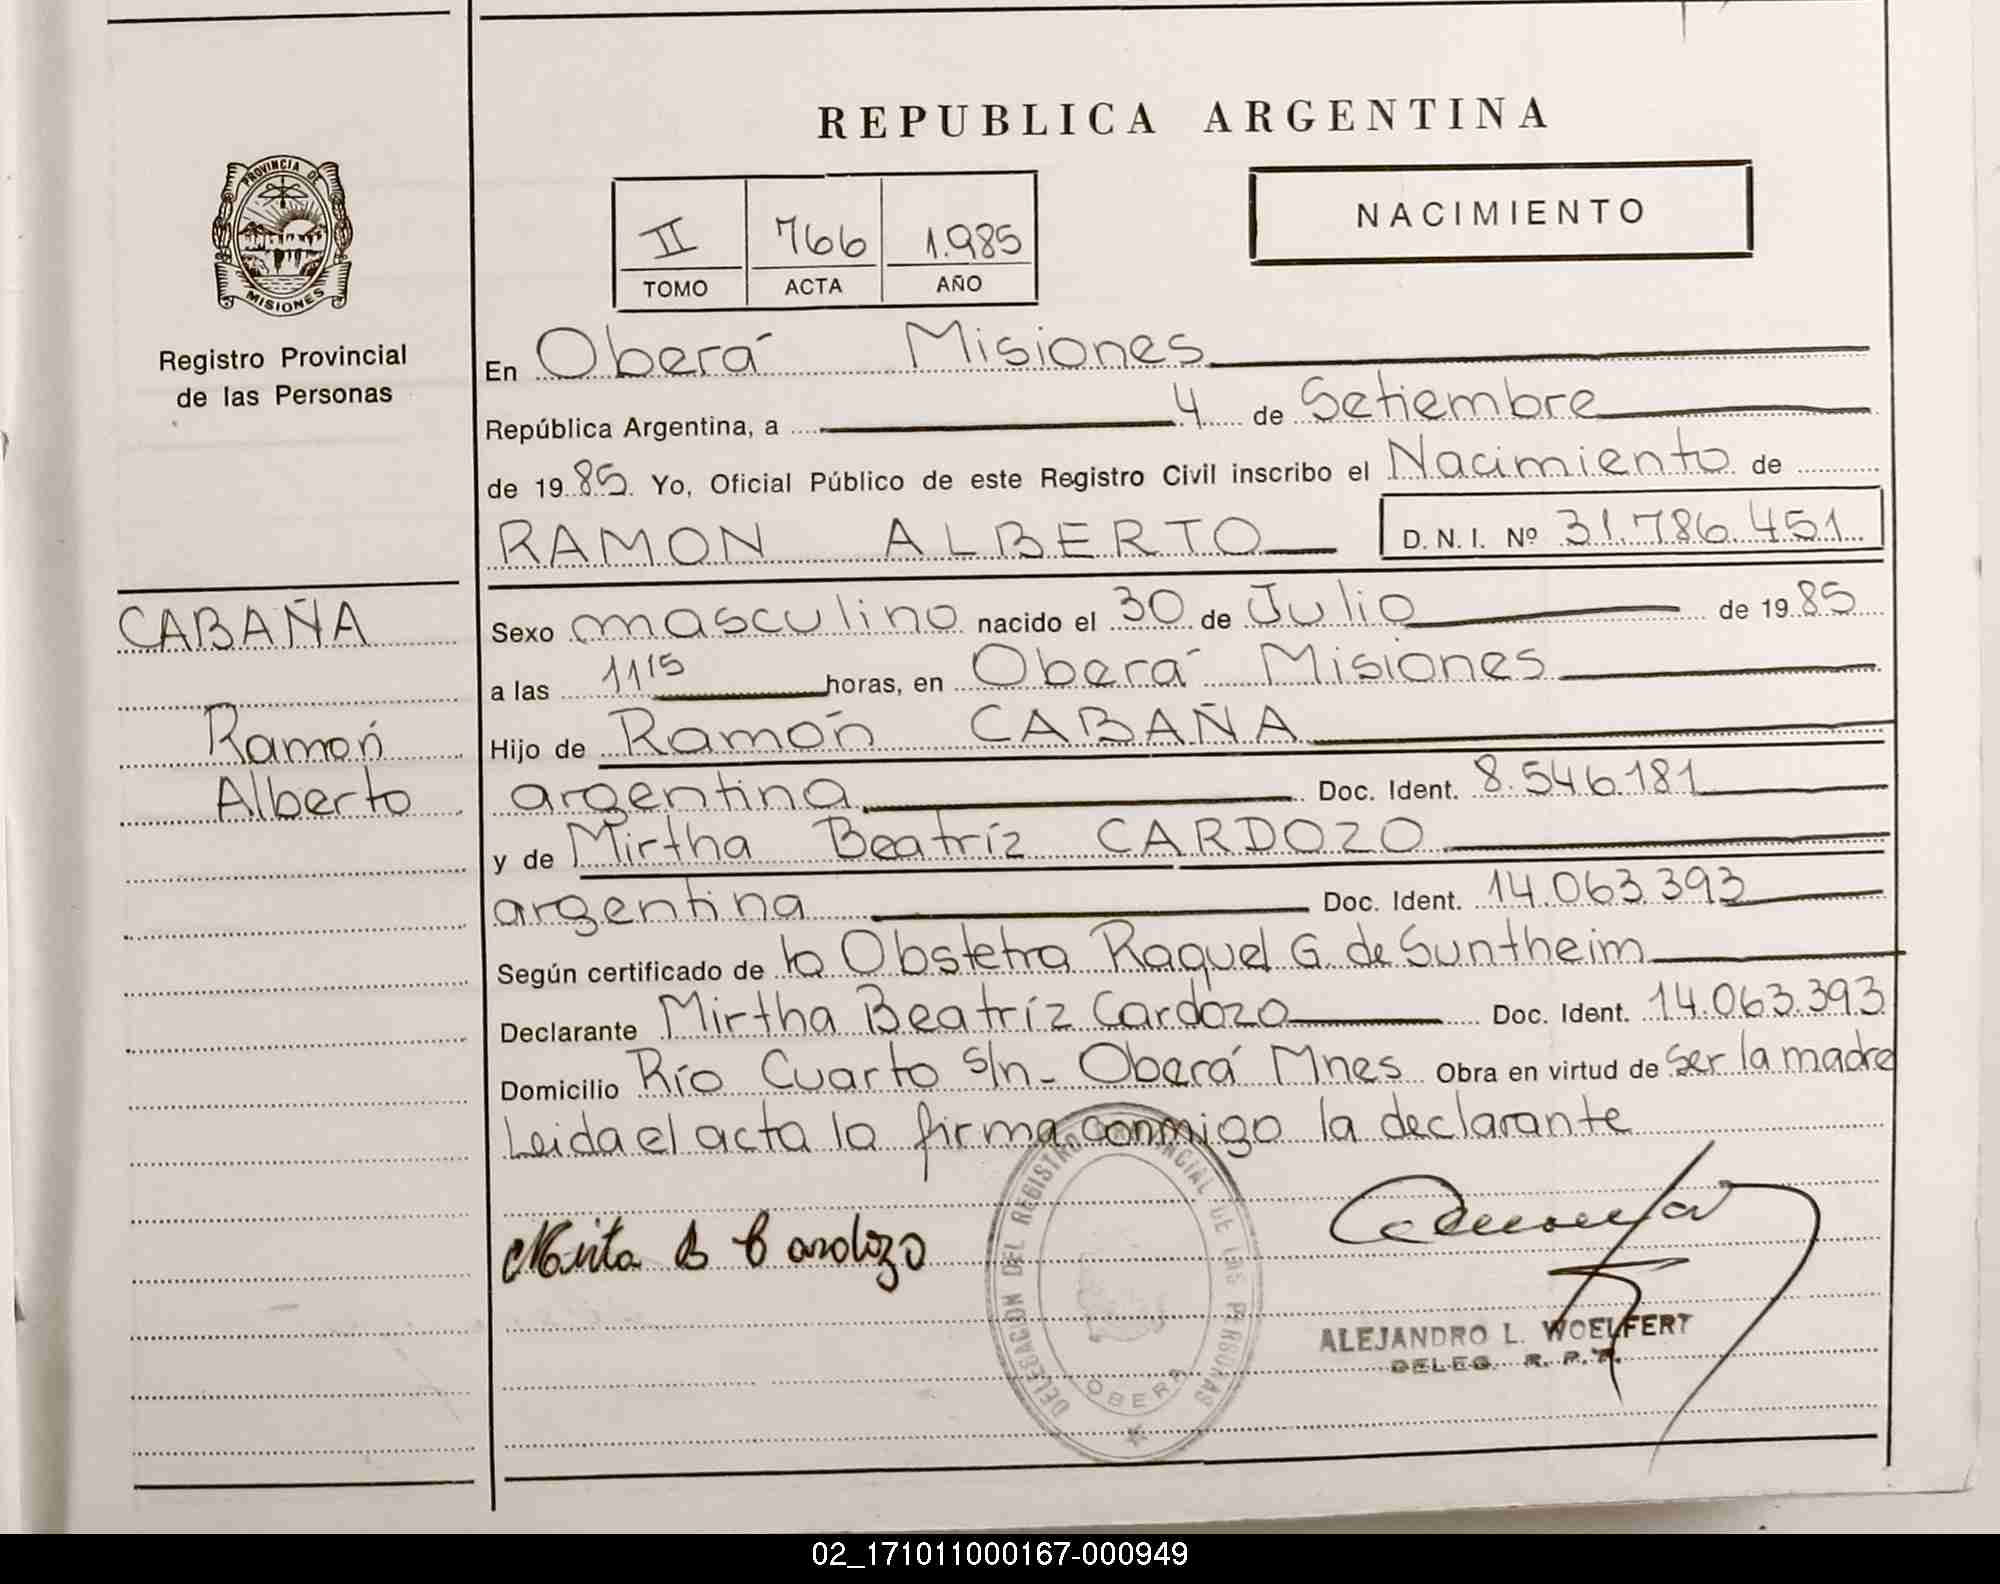 REPUBLICA ARGENTINA
PROVINCIA DE
MISIONES
Registro Provincial
de las Personas
II 766 1.985
TOMO ACTA AÑO
NACIMIENTO
En Oberá Misiones
República Argentina, a 4 de Setiembre
de 1985. Yo, Oficial Público de este Registro Civil inscribo el Nacimiento de
RAMON ALBERTO D. N. I. Nº 31.786.451
CABAÑA
Ramón
Alberto
Sexo masculino nacido el 30 de Julio de 1985
a las 11 15 horas, en Oberá Misiones
Hijo de Ramón CABAÑA
argentina Doc. Ident. 8.546.181
y de Mirtha Beatríz CARDOZO
argentina Doc. Ident. 14.063.393
Según certificado de la Obstetra Raquel G. de Suntheim
Declarante Mirtha Beatríz Cardozo Doc. Ident. 14.063.393
Domicilio Río Cuarto s/n - Oberá Mnes Obra en virtud de ser la madre
Leida el acta la firma conmigo la declarante
Mirta B Cardozo
DELEGACION DEL REGISTRO PROVINCIAL DE LAS PERSONAS
OBERA
ALEJANDRO L. WOELFERT
DELEG. R. P. P.
02_171011000167-000949